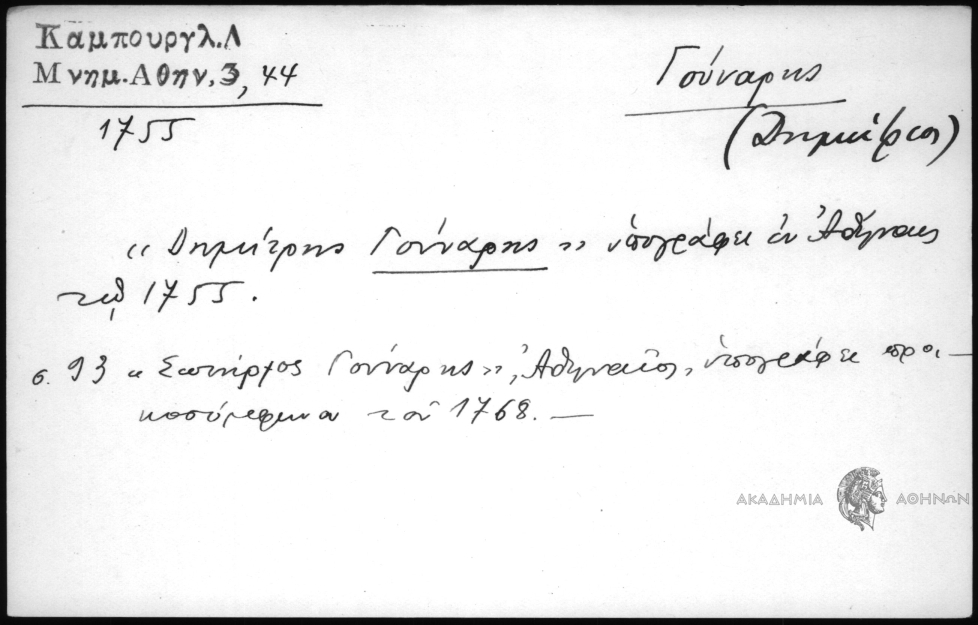 Καμπουργλ.Λ
Μνημ.Αθην.3, 44
1755
Γούναρης
(Δημήτριος)
«Δημήτρης Γούναρης» ὑπογράφει ἐν Ἀθήναις
τῷ 1755.
σ. 93 « Σωτήρχος Γούναρης», Ἀθηναῖος, ὑπογράφει προι-
κοσύμφωνον τοῦ 1768. —
ΑΚΑΔΗΜΙΑ ΑΘΗΝΩΝ